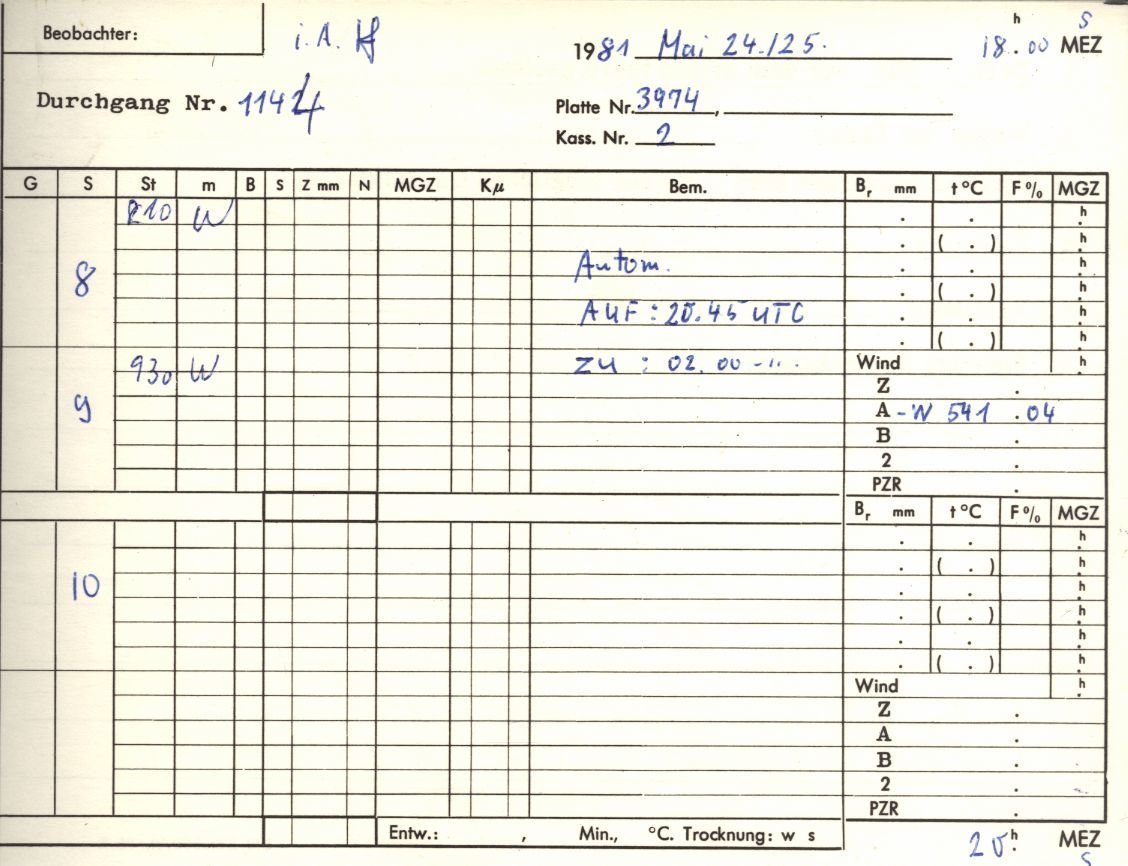 Beobachter: i. A.
1981 Mai 24./25. 18.h00 MEZ S
Durchgang Nr. 1144
Platte Nr. 3974,
Kass. Nr. 2
G S St m B S Z mm N MGZ Kμ Bem. Br mm t °C F % MGZ
210 W . . h.
. ( . ) h.
8 Autom. . . h.
. ( . ) h.
AUF : 20.45 UTC . . h.
. ( . ) h.
930 W ZU : 02.00 -"- Wind h.
Z .
9 A -W 541 .04
B .
2 .
PZR .
Br mm t °C F % MGZ
. . h.
. ( . ) h.
10 . . h.
. ( . ) h.
. . h.
. ( . ) h.
Wind h.
Z .
A .
B .
2 .
PZR .
Entw.: , Min., °C. Trocknung: w s
20 h. MEZ S